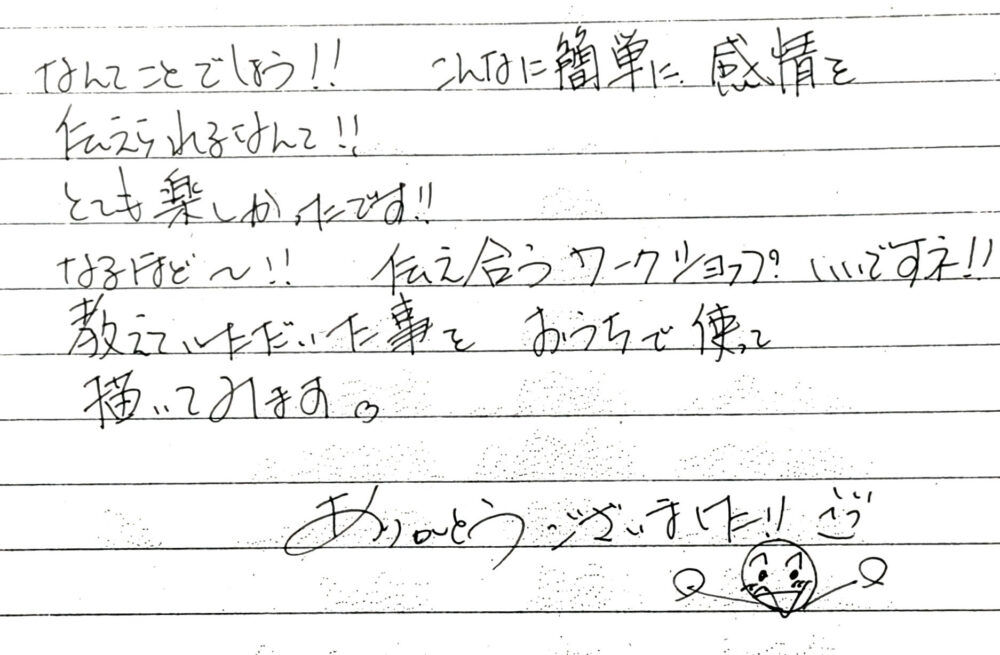 なんてことでしょう!! こんなに簡単に感情を
伝えられるなんて!!
とても楽しかったです!!
なるほど〜!! 伝え合うワークショップいいですネ!!
教えていただいた事を おうちで使って
描いてみます。
ありがとうございました!!